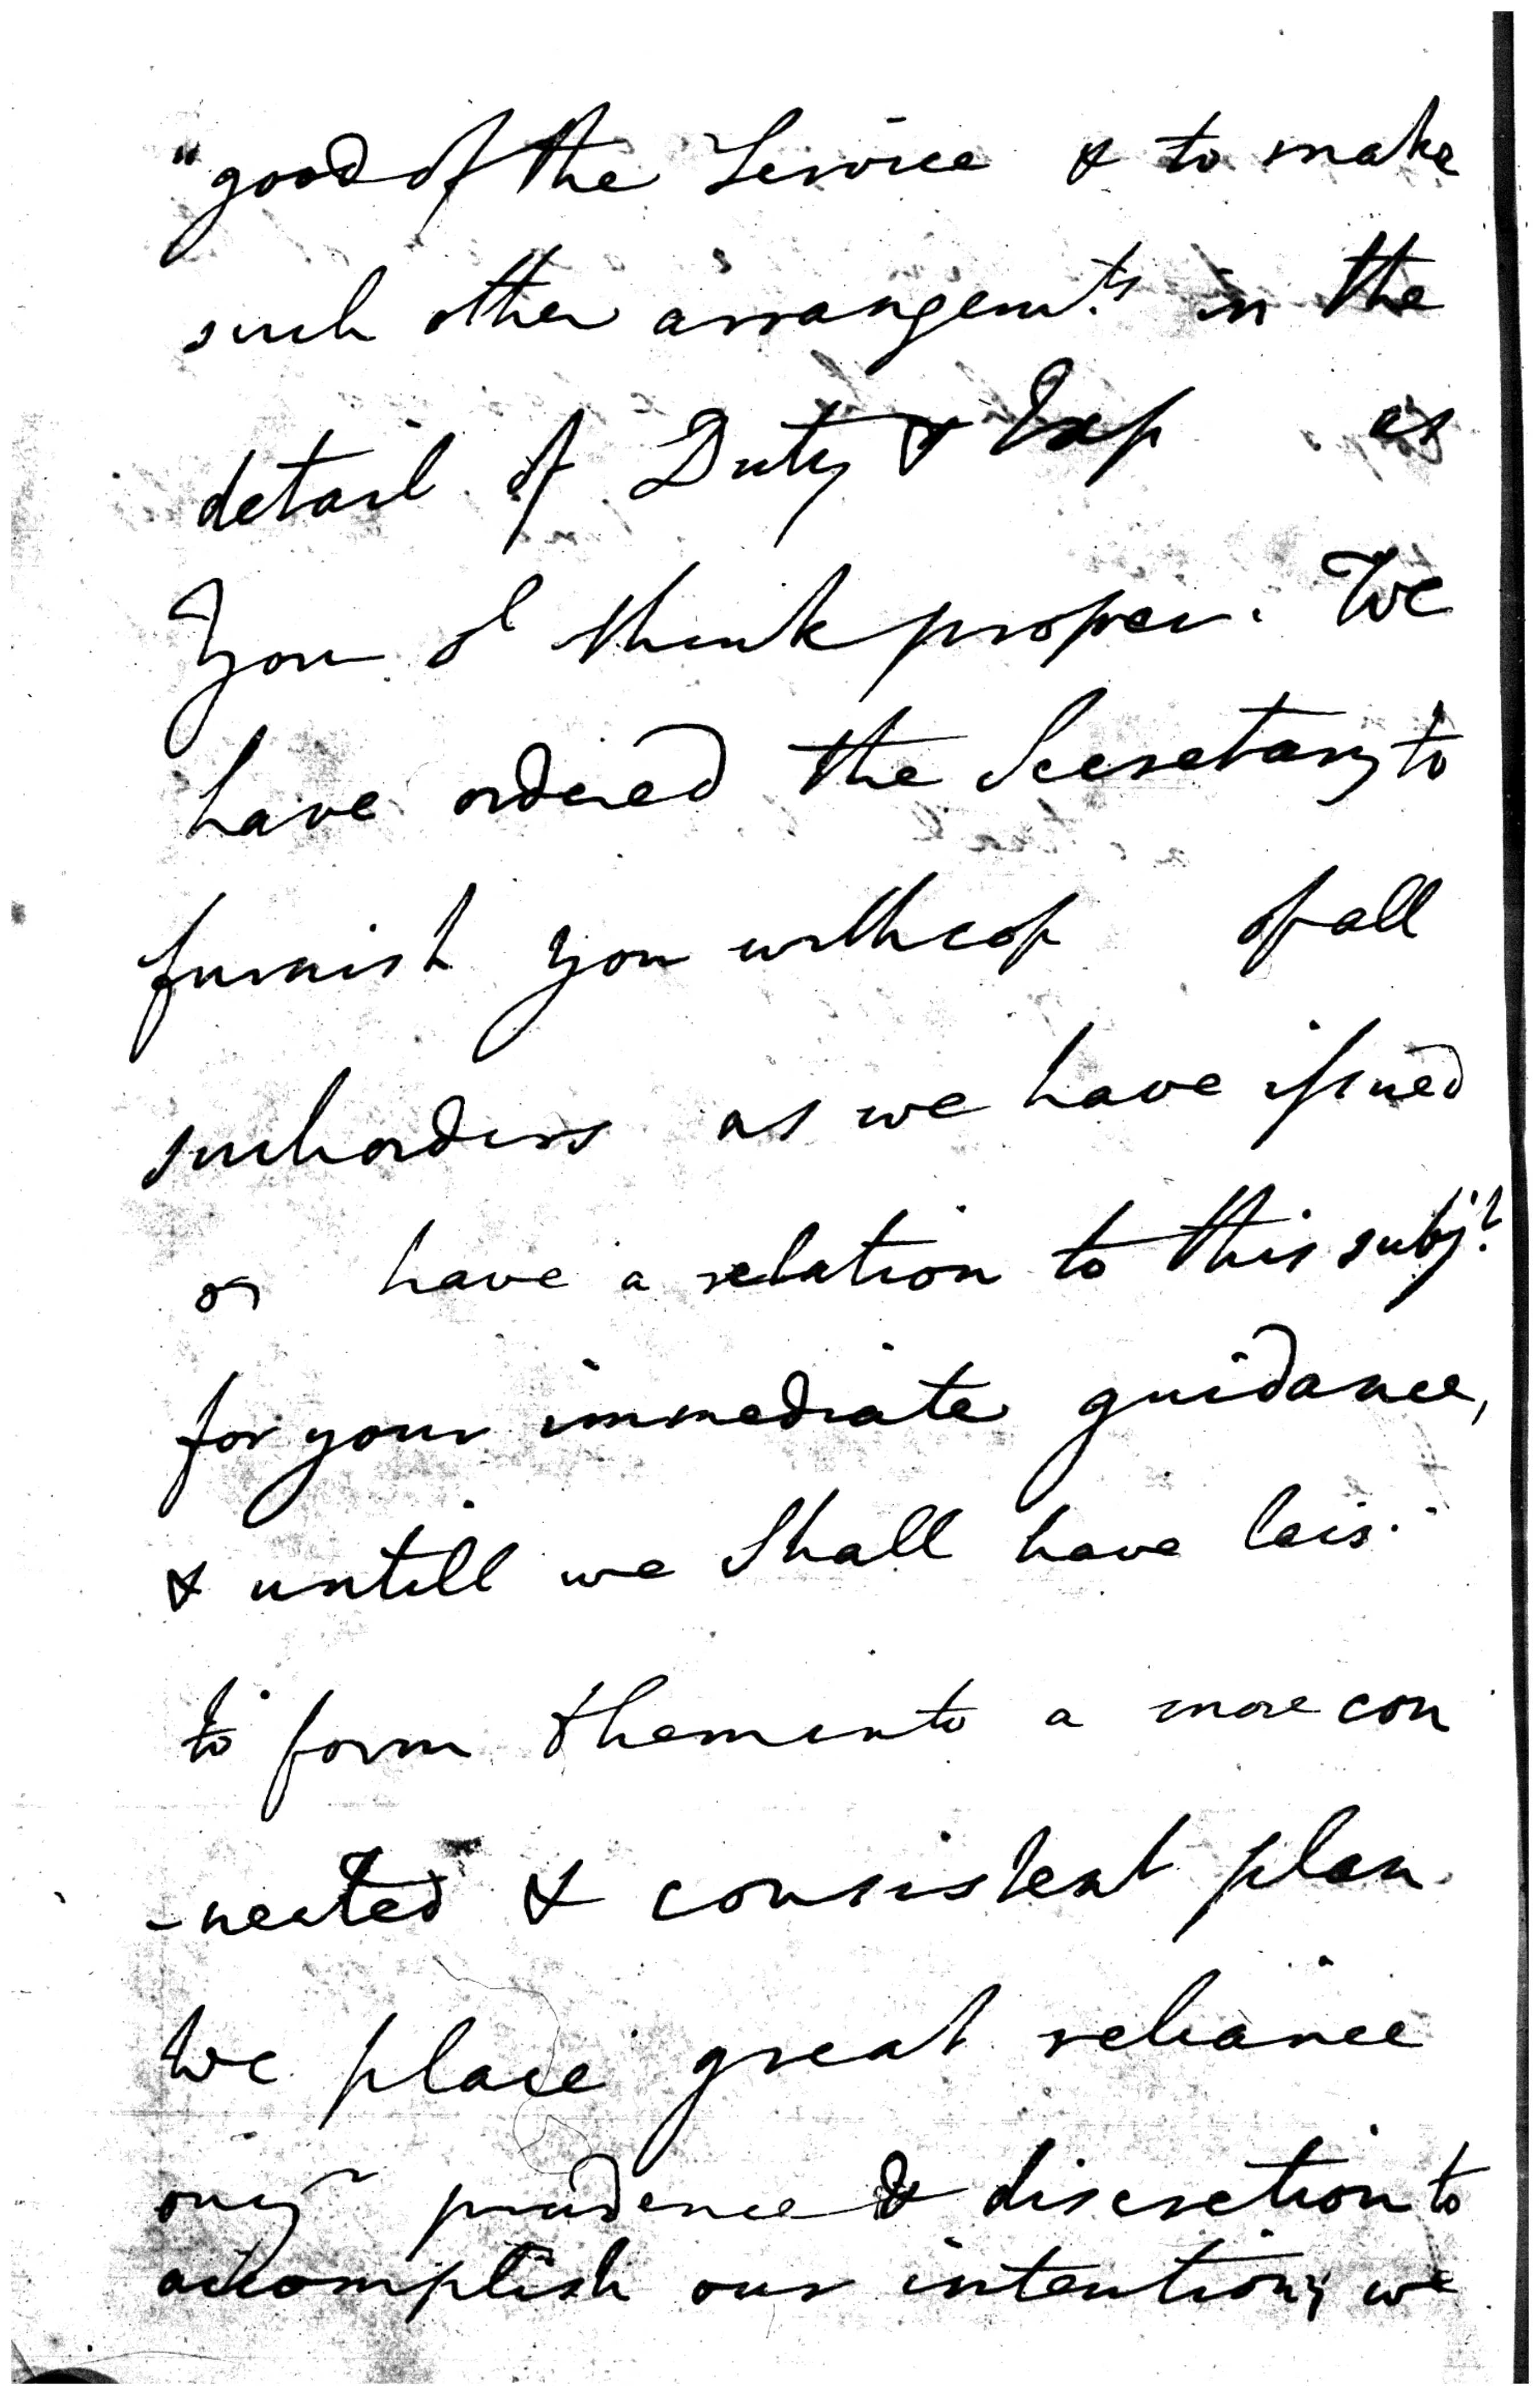 "good of the Service & to make
such other arrangem.ts in the
detail of Duty & Exp as
You d think proper. We
have ordered the Secretary to
furnish you with cop of all
such orders as we have issued
or have a relation to this subj.t
for your immediate guidance,
& untill we Shall have leis.
to form them into a more con
-nected & consistent plan.
We place great reliance
on yr prudence & discretion to
accomplish our intentions we